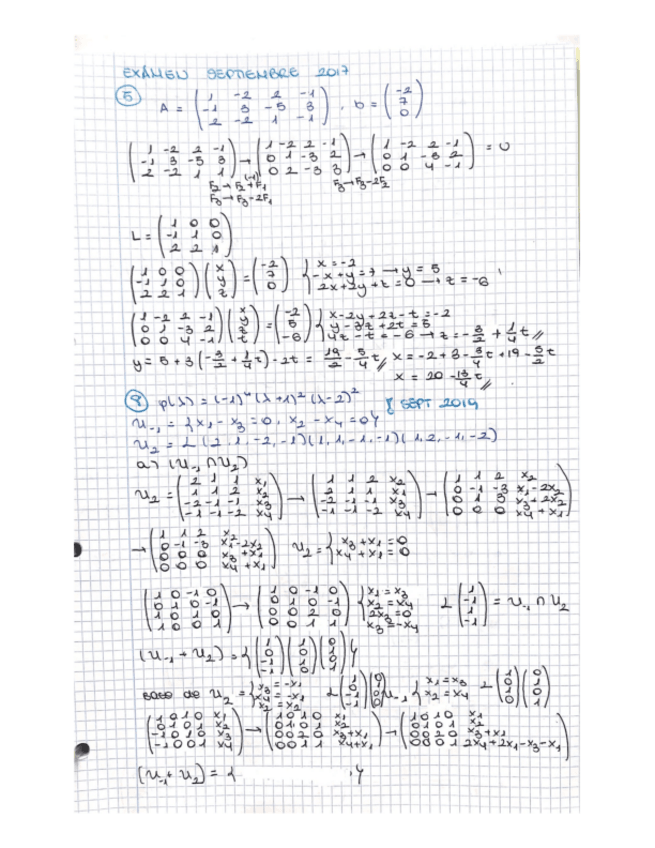 EXÁMEN SEPTIEMBRE 2017
5
A = (1 -2 2 -1 / -1 3 -5 3 / 2 -2 1 -1), b = (-2 / 7 / 0)
(1 -2 2 -1 / -1 3 -5 3 / 2 -2 1 1) → (1 -2 2 -1 / 0 1 -3 2 / 0 2 -3 3) → (1 -2 2 -1 / 0 1 -3 2 / 0 0 4 -1) = U
F2→F2+F1 F3→F3-2F2
F3→F3-2F1
L = (1 0 0 / -1 1 0 / 2 2 1)
(1 0 0 / -1 1 0 / 2 2 1) (x / y / z) = (-2 / 7 / 0) { x = -2 / -x + y = 7 → y = 5 / 2x + 2y + t = 0 → z = -6
(1 -2 2 -1 / 0 1 -3 2 / 0 0 4 -1) (x / y / z / t) = (-2 / 5 / -6) { x - 2y + 2z - t = -2 / y - 3z + 2t = 5 / 4z - t = -6 → z = -3/2 + 1/4 t //
y = 5 + 3(-3/2 + 1/4 t) - 2t = 19/2 - 5/4 t // x = -2 + 3 - 3/4 t + 19 - 5/2 t
x = 20 - 13/4 t //
p(λ) = (-1)⁴ (λ+1)² (λ-2)² SEPT 2019
U₋₁ = {x₁ - x₃ = 0, x₂ - x₄ = 0}
U₂ = L (2, 1, -2, -1) (1, 1, -1, -1) (1, 2, -1, -2)
a) (U₋₁ ∩ U₂)
U₂ = (2 1 1 x₁ / 1 1 2 x₂ / -2 -1 -1 x₃ / -1 -1 -2 x₄) → (1 1 2 x₂ / 2 1 1 x₁ / -2 -1 -1 x₃ / -1 -1 -2 x₄) → (1 1 2 x₂ / 0 -1 -3 x₁-2x₂ / 0 1 3 x₃+2x₂ / 0 0 0 x₄+x₁)
→ (1 1 2 x₂ / 0 -1 -3 x₁-2x₂ / 0 0 0 x₃+x₁ / 0 0 0 x₄+x₁) U₂ = { x₃ + x₁ = 0 / x₄ + x₁ = 0
(1 0 -1 0 / 0 1 0 -1 / 1 0 1 0 / 1 0 0 1) → (1 0 -1 0 / 0 1 0 -1 / 0 0 2 0 / 0 0 1 1) { x₁ = x₃ / x₂ = x₄ / 2x₃ = 0 / x₃ = -x₄ L (1 / -1 / 1 / -1) = U₋₁ ∩ U₂
(U₋₁ + U₂) = { (1 / 0 / -1 / -1) (1 / 0 / 1 / 0) (0 / 1 / 0 / 1) }
base de U₂ = { x₃ = -x₁ / x₄ = -x₁ / x₂ = x₂ L (1 / 0 / -1 / -1) U₋₁ { x₁ = x₃ / x₂ = x₄ L (1 / 0 / 1 / 0) (0 / 1 / 0 / 1)
(1 0 1 0 x₁ / 0 1 0 1 x₂ / -1 0 1 0 x₃ / -1 0 0 1 x₄) → (1 0 1 0 x₁ / 0 1 0 1 x₂ / 0 0 2 0 x₃+x₁ / 0 0 1 1 x₄+x₁) → (1 0 1 0 x₁ / 0 1 0 1 x₂ / 0 0 2 0 x₃+x₁ / 0 0 0 1 2x₄+2x₁-x₃-x₁)
(U₋₁ + U₂) = { , }